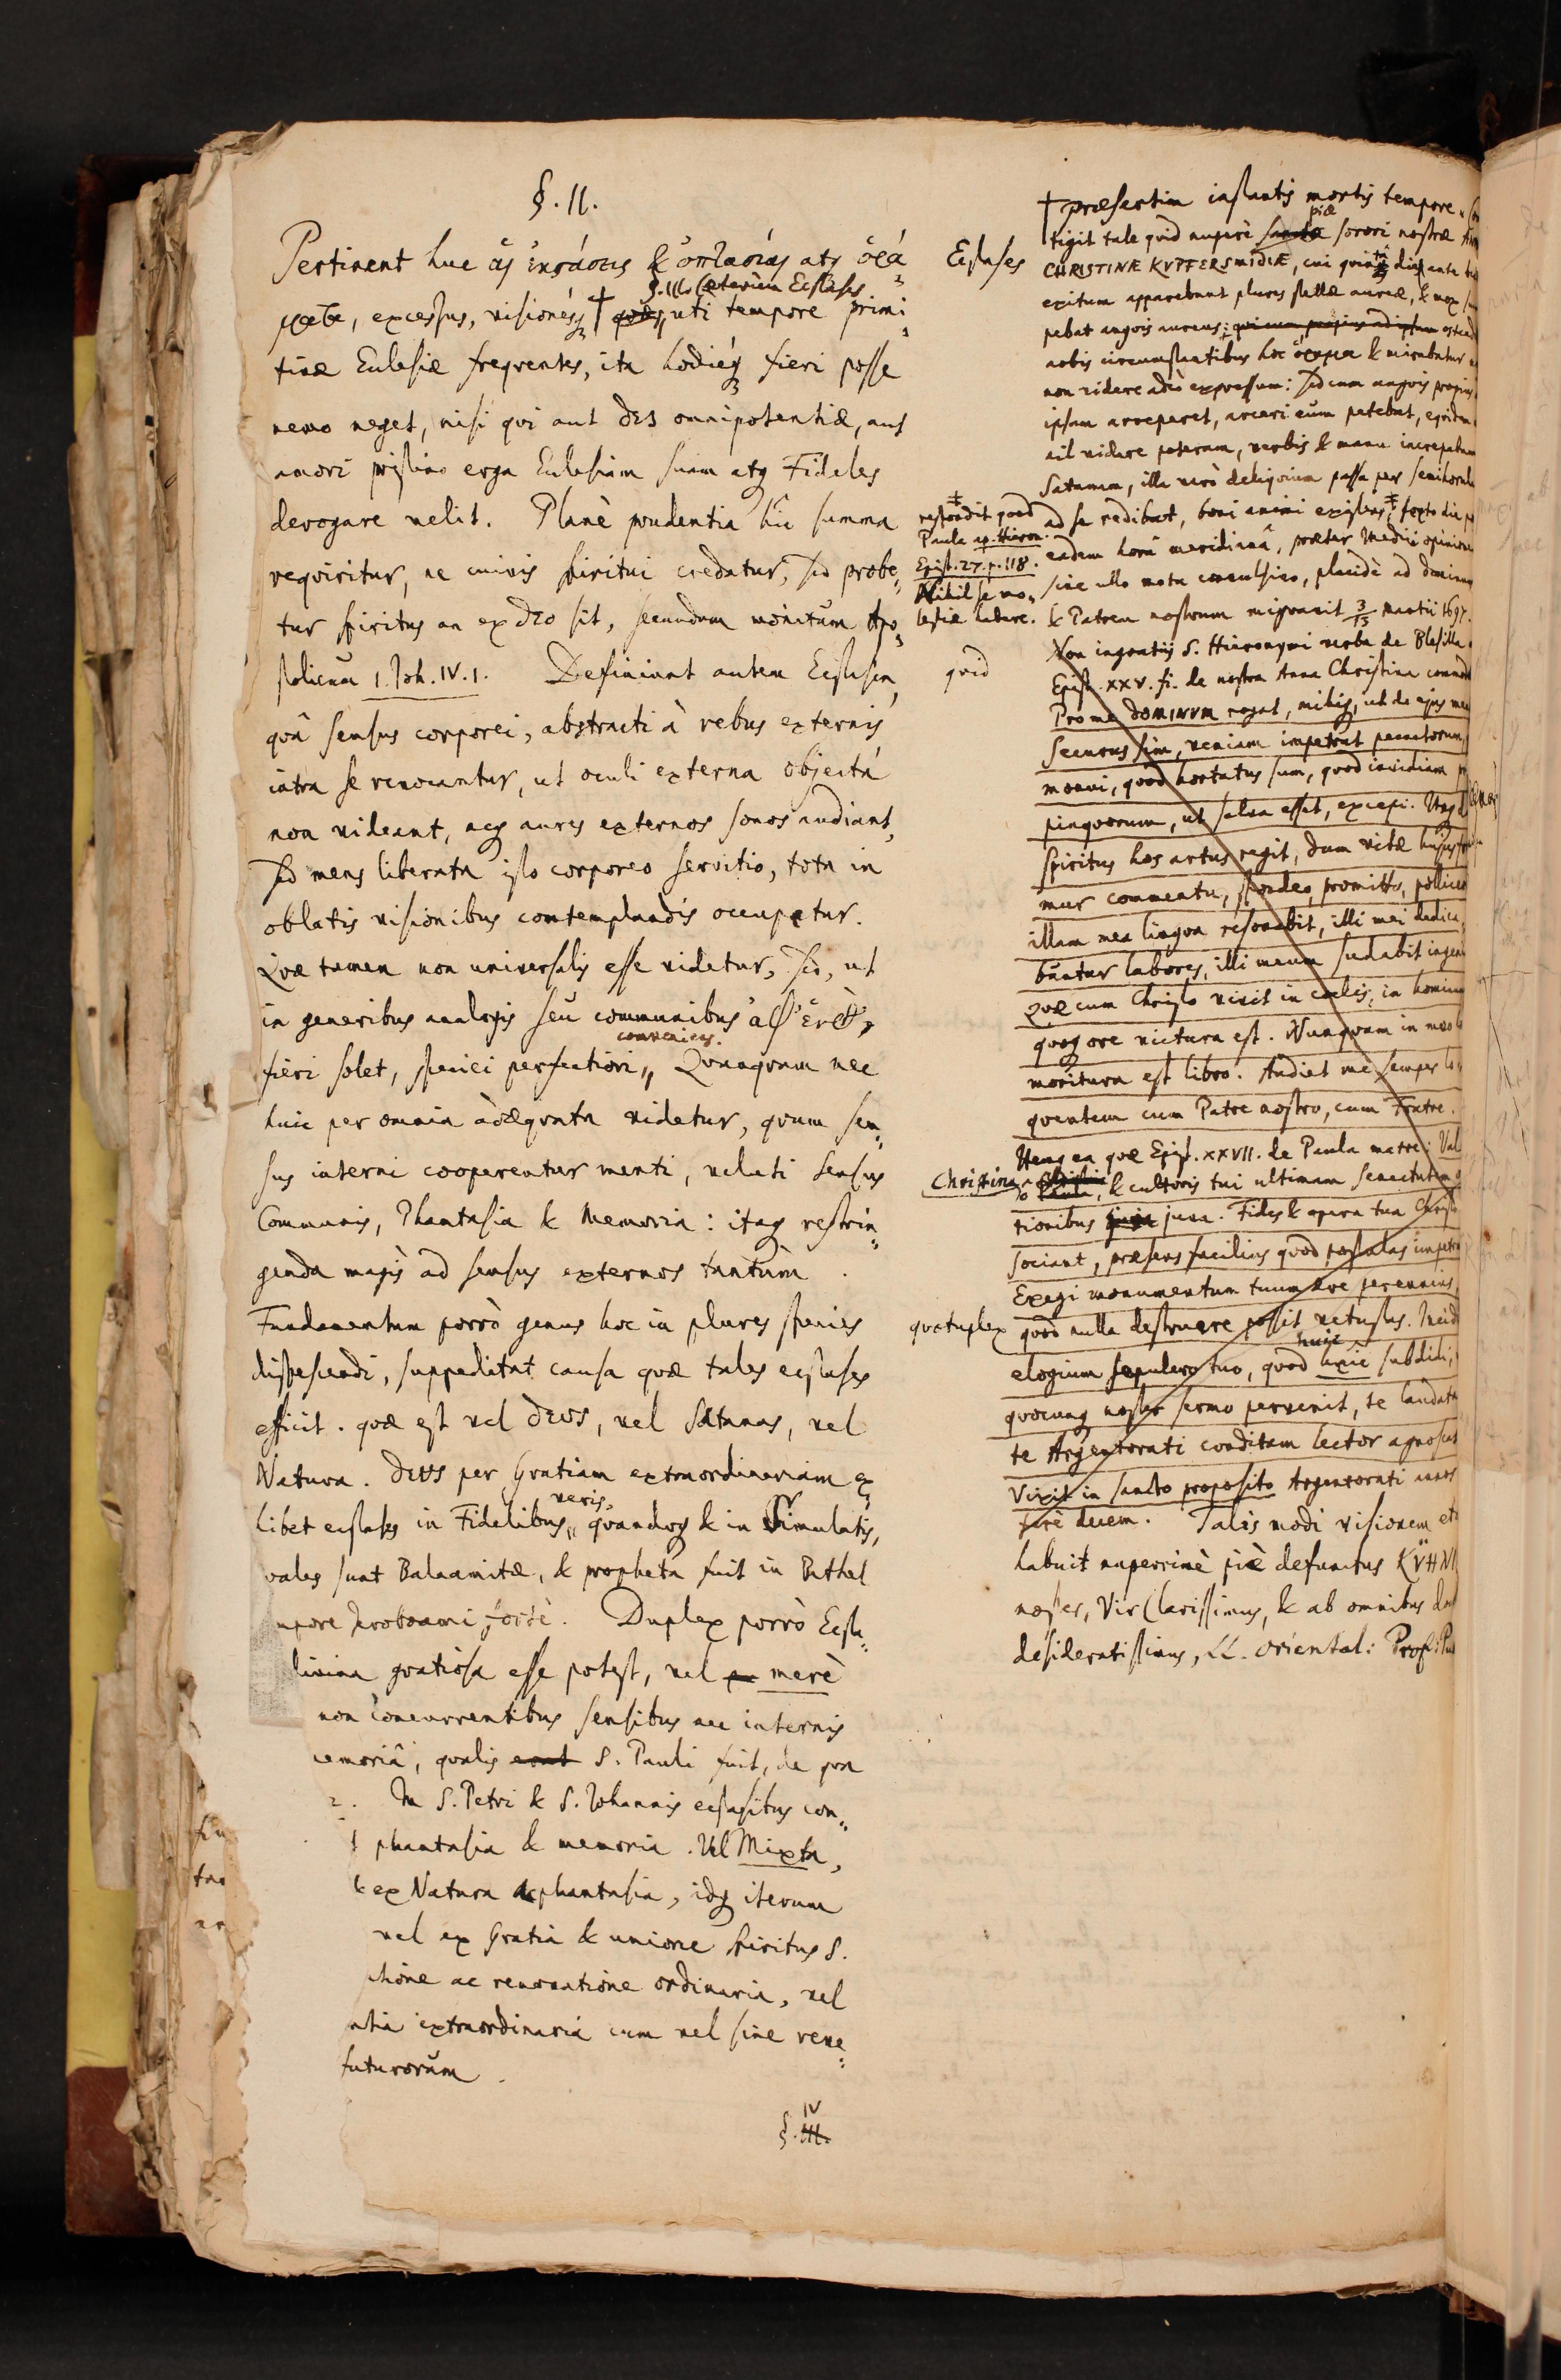 §. II.
Pertinent huc αἱ ἐκστάσεις & ὀπτασίαι atq ὁρά=
ματα, excessus, visionésq † quas, uti tempore primi=
§. III. Cæterùm Ecstases
tivæ Ecclesiæ freqventes, ita hodiéq fieri posse
nemo neget, nisi qvi aut DEI omnipotentiæ, aut
amori pristino erga Ecclesiam suam atq Fideles
derogare velit. Planè prudentia hîc summa
reqviritur, ne cuivis spiritui credatur, sed probe=
tur spiritus an ex DEO sit, secundum monitum Apo=
stolicum 1. Joh. IV. 1. Definiunt autem Ecstasin,
qvâ sensus corporei, abstracti à rebus externis
intra se revocantur, ut oculi externa objecta
non videant, neq aures externos sonos audiant,
sed mens liberata isto corporeo servitio, tota in
oblatis visionibus contemplandis occupetur.
Qvæ tamen non universalis esse videtur, sed, ut
in generibus analogis seu communibus ἀφ' ἑνὸς,
conveniens.
fieri solet, speciei perfectiori„ Qvanqvam nec
huic per omnia adæqvata videtur, qvum sen=
sus interni cooperentur menti, veluti sensus
Communis, Phantasia & Memoria: itaq restrin=
genda magis ad sensus externos tantùm.
Fundamentum porrò genus hoc in plures species
dispescendi, suppeditat causa qvæ tales ecstases
efficit. qvæ est vel DEUS, vel Satanas, vel
Natura. DEUS per Gratiam extraordinariam ex=
veris,
hibet ecstases in Fidelibus„ qvandoq & in Simulatis,
qvales sunt Balaamitæ, & propheta fuit in Bethel
mpore Jeroboami, fortè. Duplex porrò Ecsta=
divina gratiosa esse potest, vel merè
non concurrentibus sensibus nec internis
memoriâ, qvalis erat S. Pauli fuit, de qva
2. In S. Petri & S. Johannis ecstasibus con=
t phantasia & memoria. Vel Mixta,
& ex Natura & phantasia, idq iterum
vel ex Gratia & unione Spiritus S.
tione ac renovatione ordinaria, vel
atia extraordinaria cum vel sine reve=
futurorum.
§. III. IV
Ecstases
qvid
qvotuplex
† præsertim instantis mortis tempore.
piæ
tigit tale qvid nuperè sanctæ sorori nostræ
CHRISTINÆ KUPFERSMIDIÆ, cui qvintâ die ante
exitum apparebant plures stellæ aureæ, & mox
pebat angvis aureus; qui cum propius ad ipsam
nobis circumstantibus hoc ὅραμα & mirabatur
non videre adeò expressum: Sed cum angvis propius
ipsam arreperet, arceri eum petebat, eqvidem
nil videre poteram, verbis & manu increpabam
Satanam, illa verò deliqvium passa per semihorulam
ad se redibat, boni animi existens; ‡ sexto die
‡ respondit qvod
Paula ap. Hieron.
Epist. 27. p. 118.
Nihil se mo=
lestiæ habere.
eadem horâ meridianâ, præter Medici opinionem
sine ullo motu convulsivo, placidè ad Dominum
& Patrem nostrum migravit 3/13 Martii 1697.
Non ingratiis S. Hieronymi verba de Blesilla
Epist. XXV. fi. de nostra Anna Christina
Pro me DOMINUM rogat, mihiq, ut de ejus
securus sim, veniam impetrat peccatorum,
monui, qvod hortatus sum, qvod invidiam
pinqvorum, ut salva esset, excepi. Itaq
spiritus hos artus regit, dum vitæ hujus
mur commeatu, spondeo, promitto, polliceor
illam mea lingva resonabit, illi mei dedica=
buntur labores, illi meum sudabit ingenium
Qvæ cum Christo vivit in coelis, in hominum
qvoq ore victura est. Nunqvam in meo
moritura est libro. Audiet me semper lo
qventem cum Patre nostro, cum Fratre.
Itemq ea qvæ Epist. XXVII. de Paula matre: Vale
Christina
o Paula, & cultoris tui ultimam senectutem
tionibus juva. Fides & opera tua Christo
sociant, præsens facilius qvod postulas impetra
Exegi monumentum tuum ære perennius,
qvod nulla destruere possit vetustas. Incidi
huic
elogium sepulcro tuo, qvod subdidi,
qvocunq noster sermo pervenit, te laudatam
te Argentorati conditam lector agnoscat
Vixit in sancto proposito Argentorati annos
ferè decem. Talis modi visionem
habuit nuperrimè piè defunctus KÜHNI
noster, Vir Clarissimus, & ab omnibus
desideratissimus, LL. Oriental: Prof: